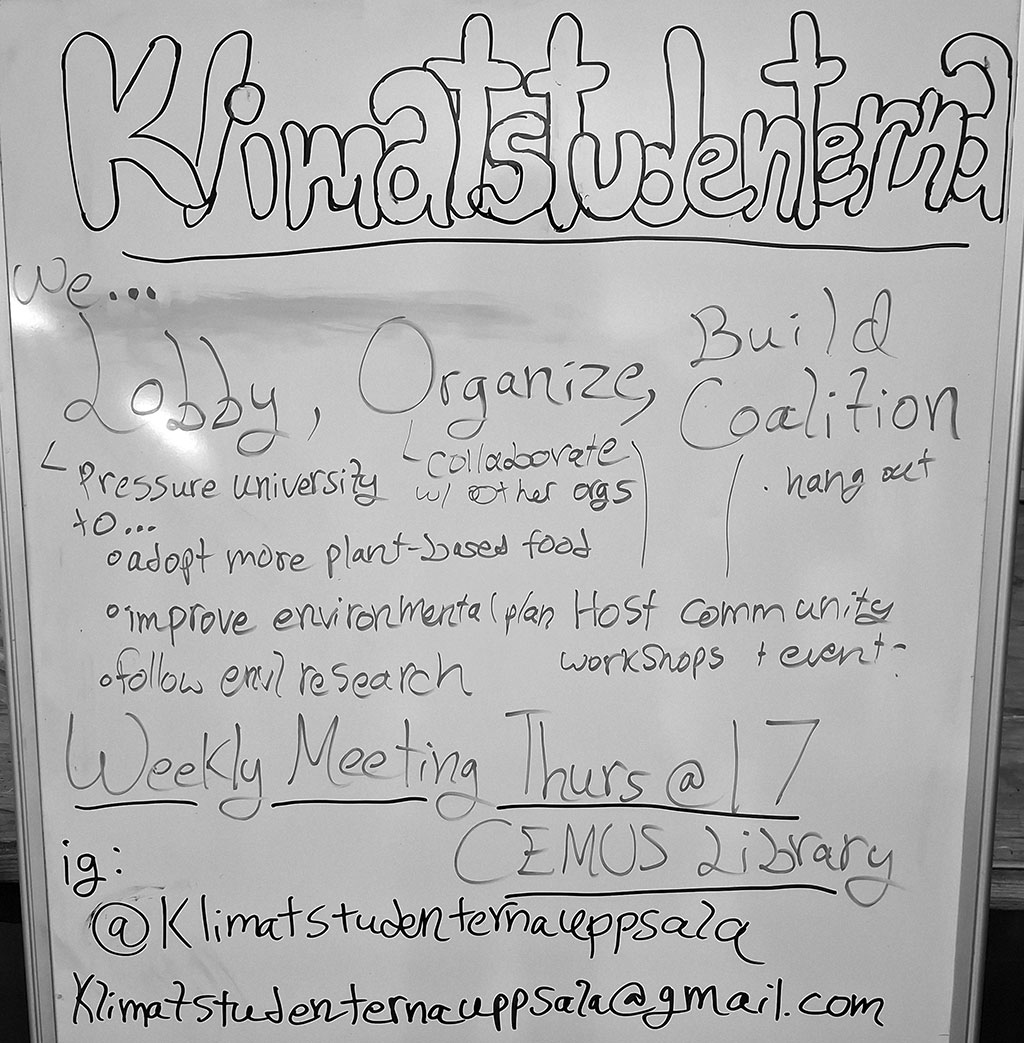 Klimatstudenterna
We...
Lobby, Organize, Build Coalition
Pressure university to...
• adopt more plant-based food
• improve environmental plan
• follow envl research
collaborate w/ other orgs
• hang out
Host community workshops + event
Weekly Meeting Thurs @ 17
CEMUS Library
ig:
@Klimatstudenternauppsala
Klimatstudenternauppsala@gmail.com